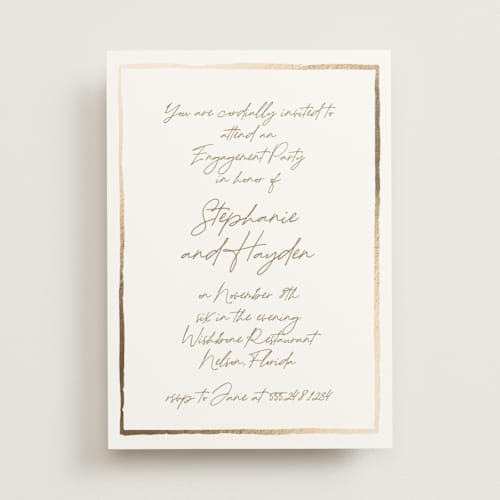 You are cordially invited to
attend an
Engagement Party
in honor of
Stephanie
and Hayden
on November 8th
six in the evening
Wishbone Restaurant
Nelson, Florida
rsvp to Jane at 555.248.1284